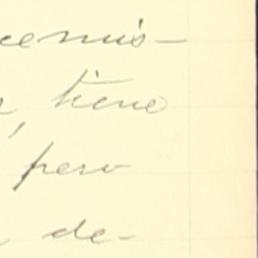 cemis-
, tiene
pero
de-